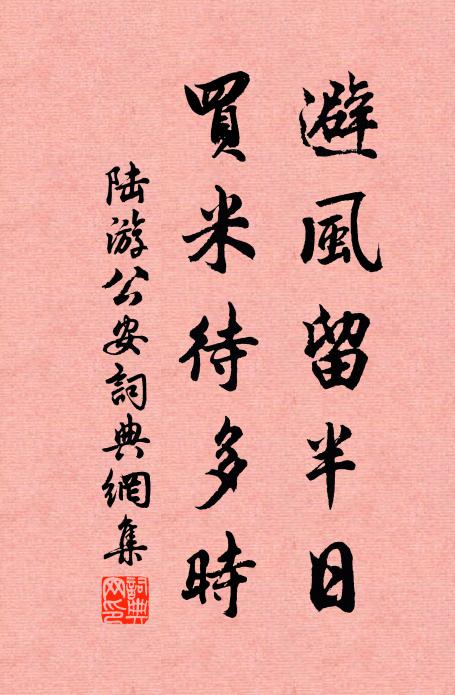 避風留半日
買米待多時
陆游公安詞典網集
詞典網印